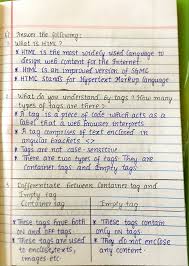 Answer the following:
What is HTML?
* HTML is the most widely used language to
design web content for the Internet
* HTML is an improved version of SGML
* HTML stands for Hypertext Markup language
2. What do you understand by tags? How many
types of tags are there?
* A tag is a piece of code which acts as a
label that a web browser interprets
* A tag comprises of text enclosed in
angular brackets <>
* Tags are not case sensitive
* There are two types of tags. They are
container tags and Empty tags
3. Differentiate between Container tag and
Empty tag
Container tag Empty tag
* These tags have both * These tags contain
ON and OFF tags only ON tags
* These tags are used * They do not enclose
to enclose texts, any content
images etc